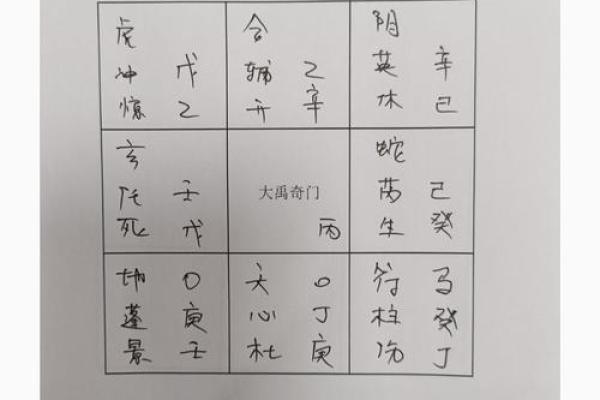 虎
冲 戊
惊 乙
合
辅 乙
开 辛
阴
英 辛
休 己
玄
任 壬
死 戊
大禹奇门
丙
蛇
芮 己
生 癸
地 O
蓬 庚
景 壬
天 O
心 丁
杜 庚
符 马
柱 癸
伤 丁